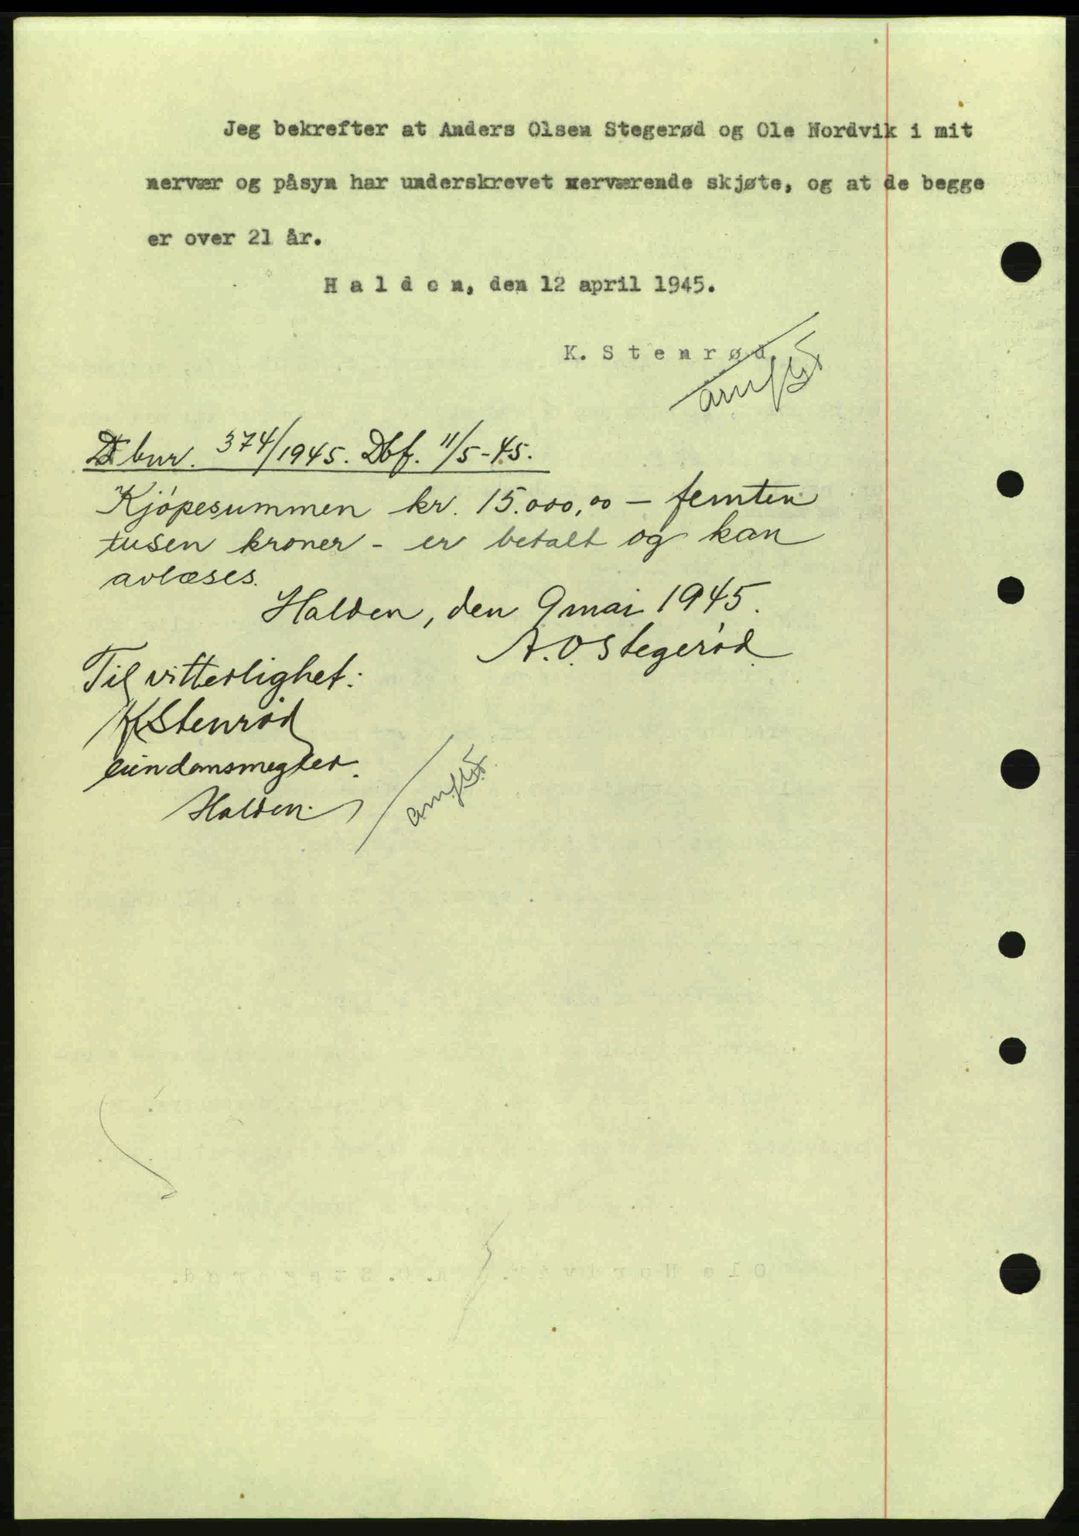 Jeg bekrefter at Anders Olsen Stegerød og Ole Nordvik i mit
nervær og påsyn har underskrevet nerværende skjøte, og at de begge
er over 21 år.
H a l d e n, den 12 april 1945.
K. S t e n r ø d
Dbnr. 374/1945. Dbf. 11/5-45.
Kjöpesummen kr. 15.000,00 — femten
tusen kroner - er betalt og kan
avlæses.
Halden, den 9 mai 1945.
A. O. Stegerød.
Til vitterlighet:
K Stenrød
eiendomsmegler.
Halden.